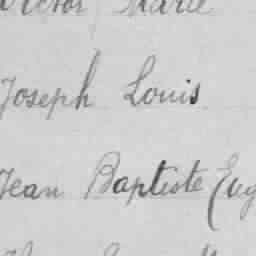 Victor Marie
Joseph Louis
Jean Baptiste Eug